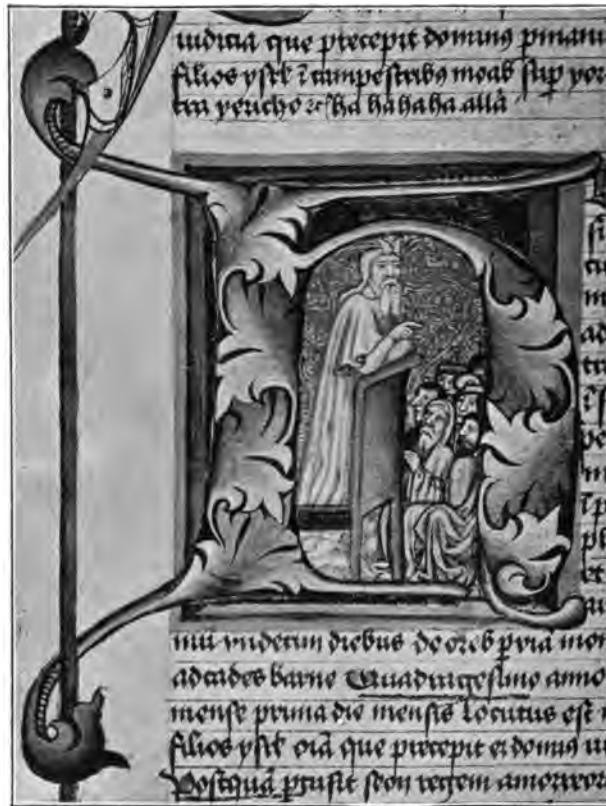 iudicia que precepit dominꝰ pmanu
filios ysrl ī campestribꝰ moab sup yor
yericho ⁊c ha ha ha ha allā
cu
m
ad
pe
m
et
vndecim diebus de oreb p uiā mon
ad cades barne Quadragesimo anno
mense prima die mensis Locutus est
filios ysrl oīa que precepit ei domiꝰ
Postquā pcusit seon regem amorreor